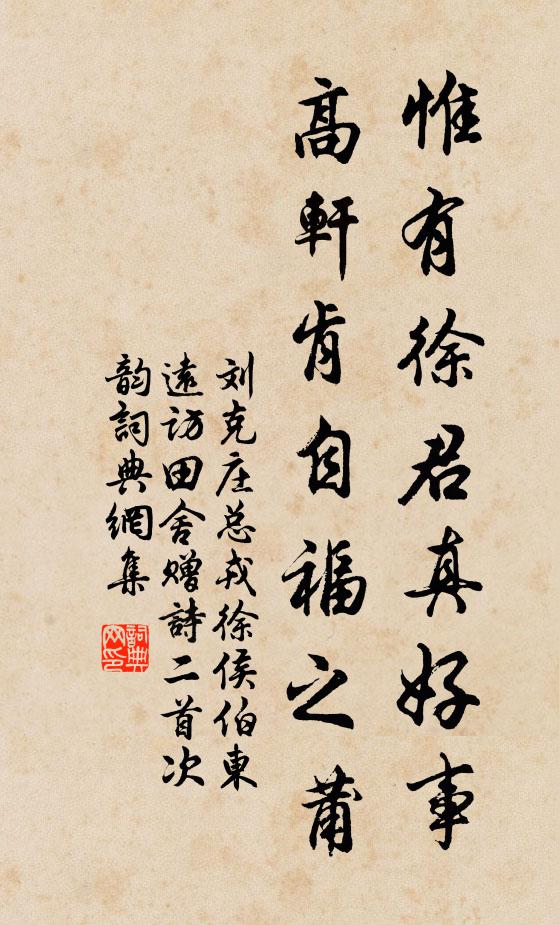 惟有徐君真好事
高軒肯自福之莆
刘克庄总戎徐侯伯東
遠访田舍赠詩二首次
韵詞典網集
詞典網印